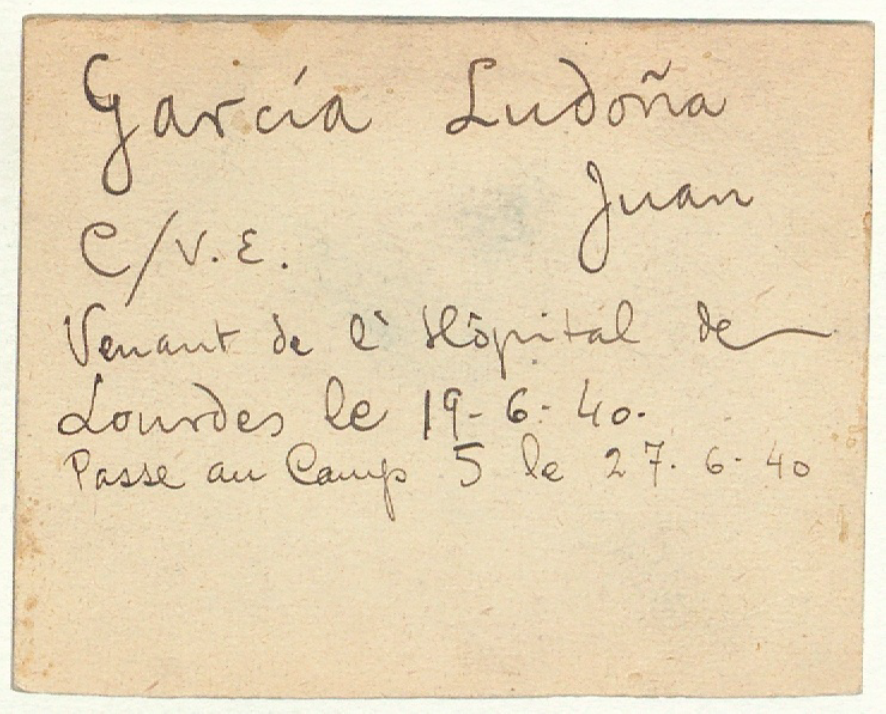 García Ludoña
Juan
C/V.E.
Venant de l'Hôpital de
Lourdes le 19-6-40.
Passe au Camp 5 le 27.6-40